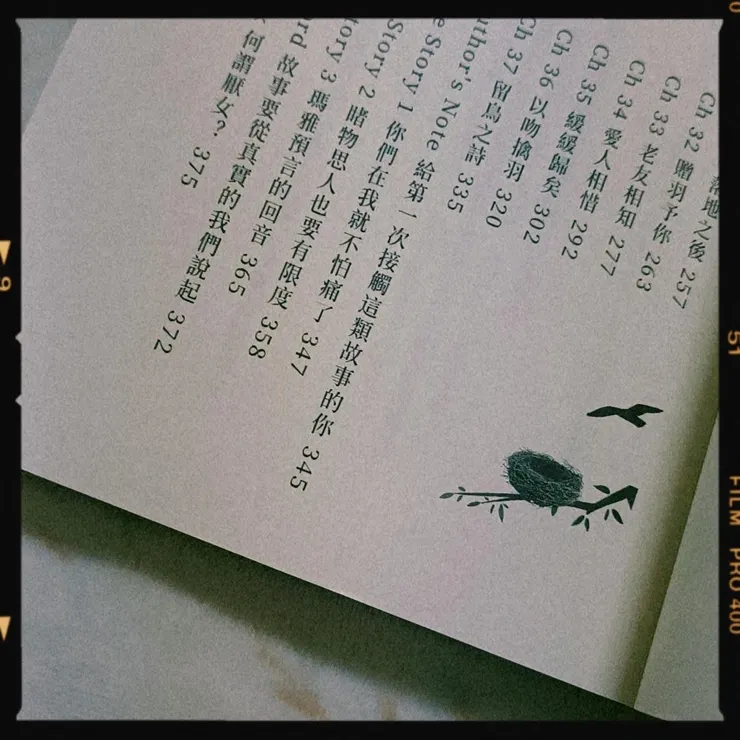 落地之後 257
Ch 32 贈羽予你 263
Ch 33 老友相知 277
Ch 34 愛人相惜 292
Ch 35 緩緩歸矣 302
Ch 36 以吻擒羽 320
Ch 37 留鳥之詩 335
uthor's Note 給第一次接觸這類故事的你 345
e Story 1 你們在我就不怕痛了 347
Story 2 睹物思人也要有限度 358
tory 3 瑪雅預言的回音 365
rd 故事要從真實的我們說起 372
何謂厭女？ 375
9
51
FILM PRO 400